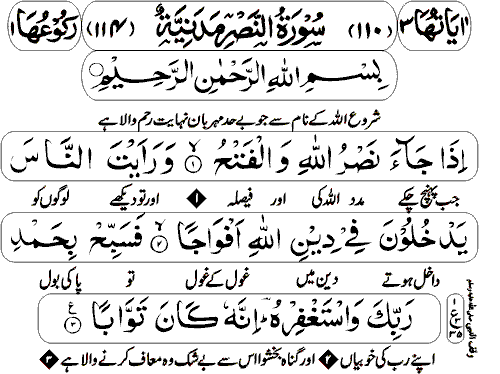 اٰيَاتُهَا ٣ (١١٠) سُوْرَةُ النَّصْرِ مَدَنِيَّةٌ (١١٤) رُكُوْعُهَا ١
بِسْمِ اللّٰهِ الرَّحْمٰنِ الرَّحِيْمِ
شروع اللہ کے نام سے جو بے حد مہربان نہایت رحم والا ہے
اِذَا جَآءَ نَصْرُ اللّٰهِ وَالْفَتْحُ ۙ‏ ١ وَرَاَيْتَ النَّاسَ
جب پہنچ چکے مدد اللہ کی اور فیصلہ ١ اور تو دیکھے لوگوں کو
يَدْخُلُوْنَ فِيْ دِيْنِ اللّٰهِ اَفْوَاجًا ۙ‏ ٢ فَسَبِّحْ بِحَمْدِ
داخل ہوتے دین میں غول کے غول تو پاکی بول
رَبِّكَ وَاسْتَغْفِرْهُ ؕ اِنَّهٗ كَانَ تَوَّابًا ٣ ع
اپنے رب کی خوبیاں ٢ اور گناہ بخشوا اس سے بے شک وہ معاف کرنے والا ہے ٣